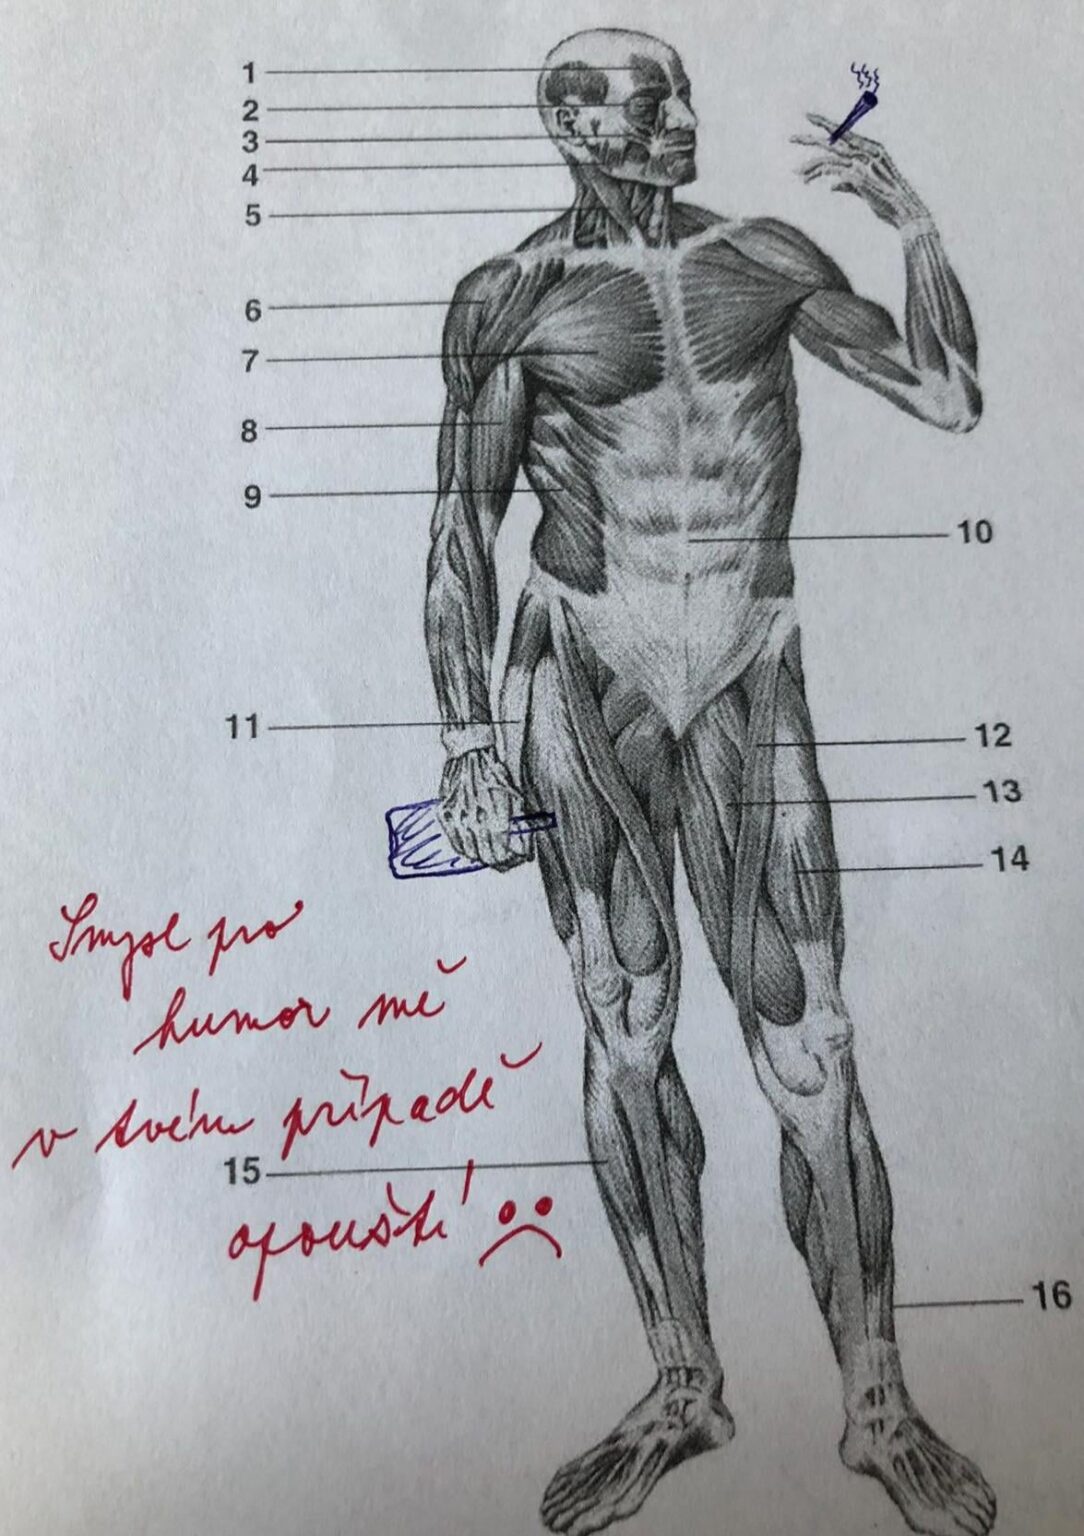 1
2
3
4
5
6
7
8
9
10
11
12
13
14
Smysl pro
humor mě
v tvém případě
15
opouští!
16